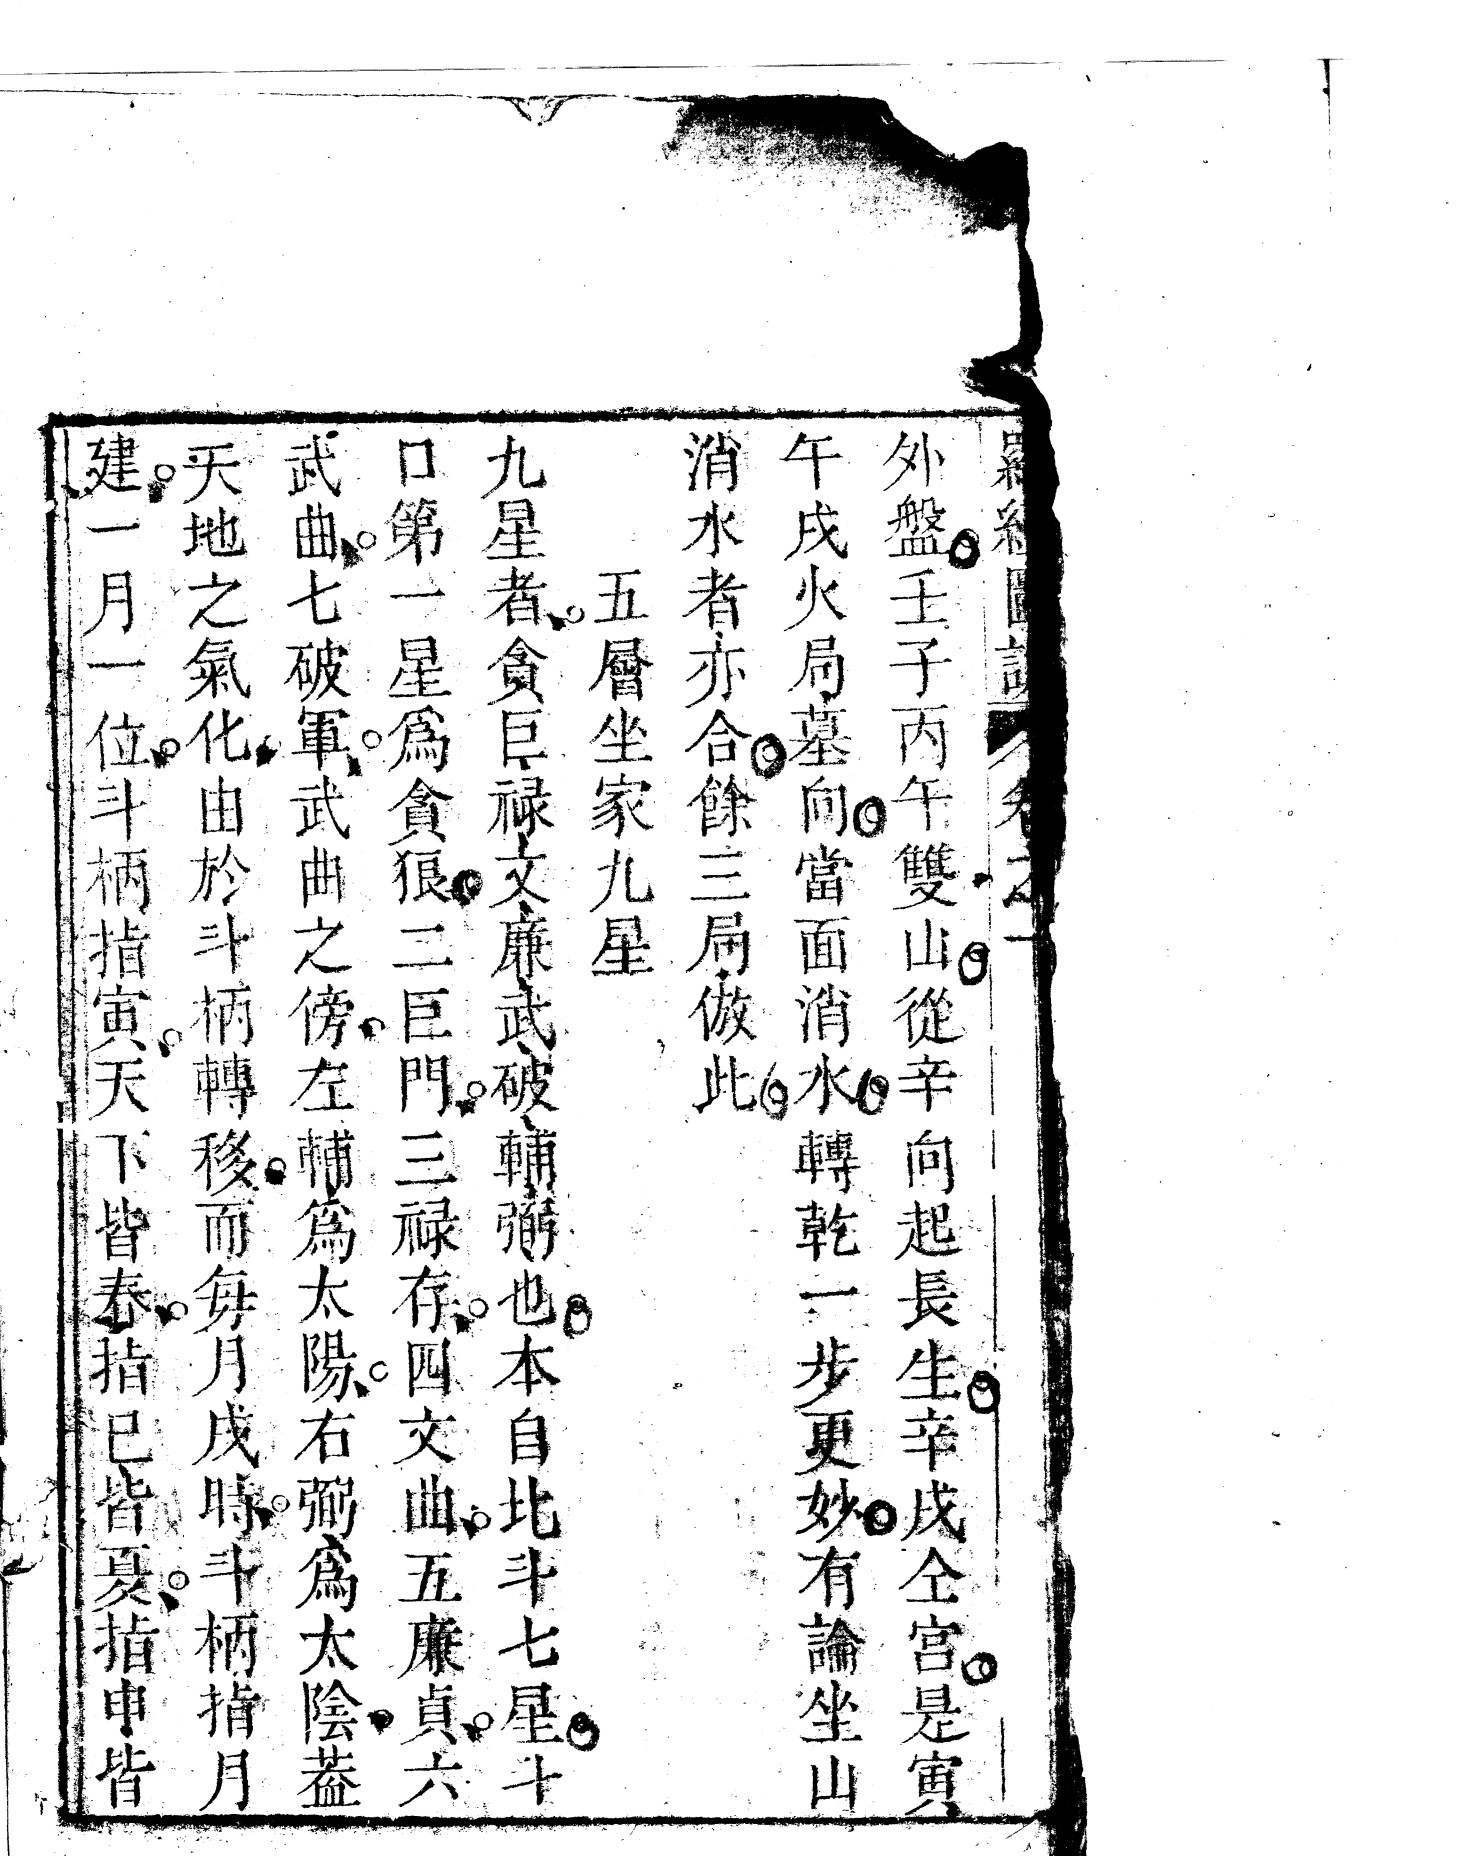 羅經圖説 卷之一
外盤壬子丙午雙山從辛向起長生辛戌仝宫是寅
午戌火局墓向當面消水轉乾一步更妙有論坐山
消水者亦合餘三局倣此
五層坐家九星
九星者貪巨禄文廉武破輔弼也本自北斗七星斗
口第一星爲貪狼二巨門三禄存四文曲五廉貞六
武曲七破軍武曲之傍左輔爲太陽右弼爲太陰葢
天地之氣化由於斗柄轉移而毎月戌時斗柄指月
建一月一位斗柄指寅天下皆春指巳皆夏指申皆